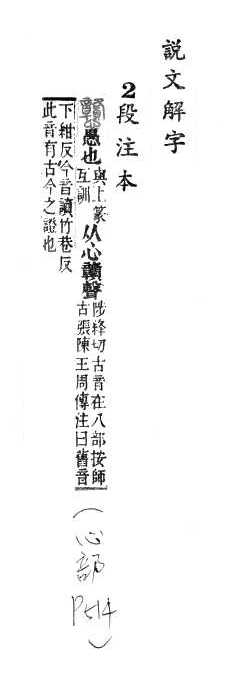 說文解字
2段注本
戇愚也與上篆互訓从心贛聲陟絳切古音在八部按師古張陳王周傳注曰舊音
下紺反今音讀竹巷反
此音有古今之證也
(心部 P514)